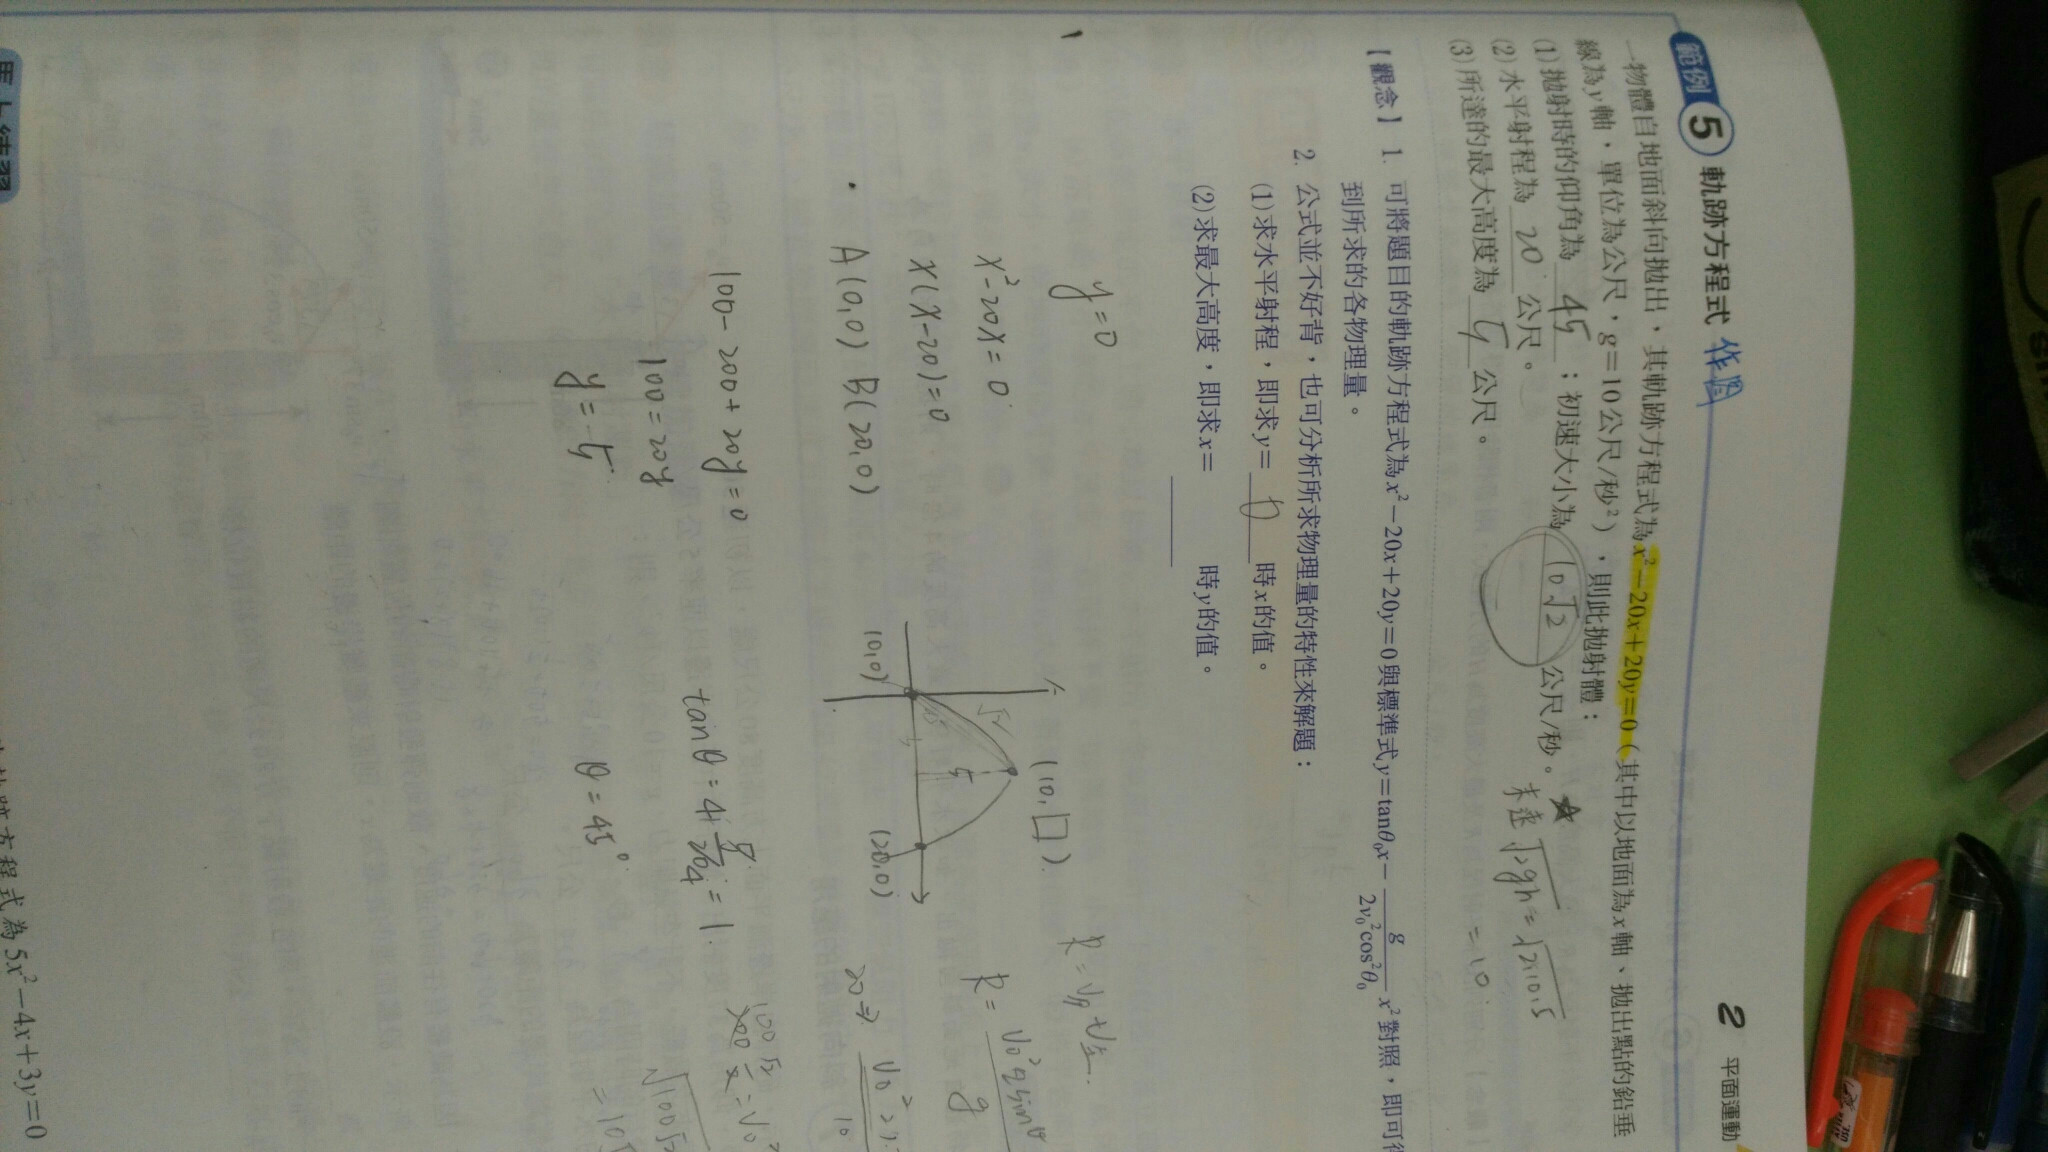 2 平面運動
範例 5 軌跡方程式 作圖
一物體自地面斜向拋出，其軌跡方程式為x²−20x+20y=0（其中以地面為x軸、拋出點的鉛垂
線為y軸，單位為公尺，g=10公尺/秒²），則此拋射體：
(1)拋射時的仰角為 45 ；初速大小為 10√2 公尺/秒。
(2)水平射程為 20 公尺。
(3)所達的最大高度為 5 公尺。
√2gh=√2×10.5
=10
【觀念】1. 可將題目的軌跡方程式為x²−20x+20y=0與標準式y=tanθ₀x−g/(2v₀²cos²θ₀)x²對照，即可得
到所求的各物理量。
2. 公式並不好背，也可分析所求物理量的特性來解題：
(1)求水平射程，即求y= 0 時x的值。
(2)求最大高度，即求x= 時y的值。
y=0
x²-20x=0
x(x-20)=0
A(0,0) B(20,0)
100-200+20y=0
100=20y
y=5
(10,□)
5
(0,0)
(20,0)
tanθ=4·5/20=1
θ=45°
R=
R=V₀²2sinθ/g
20=
=V₀²
馬上練習
跡方程式為5x²−4x+3y=0